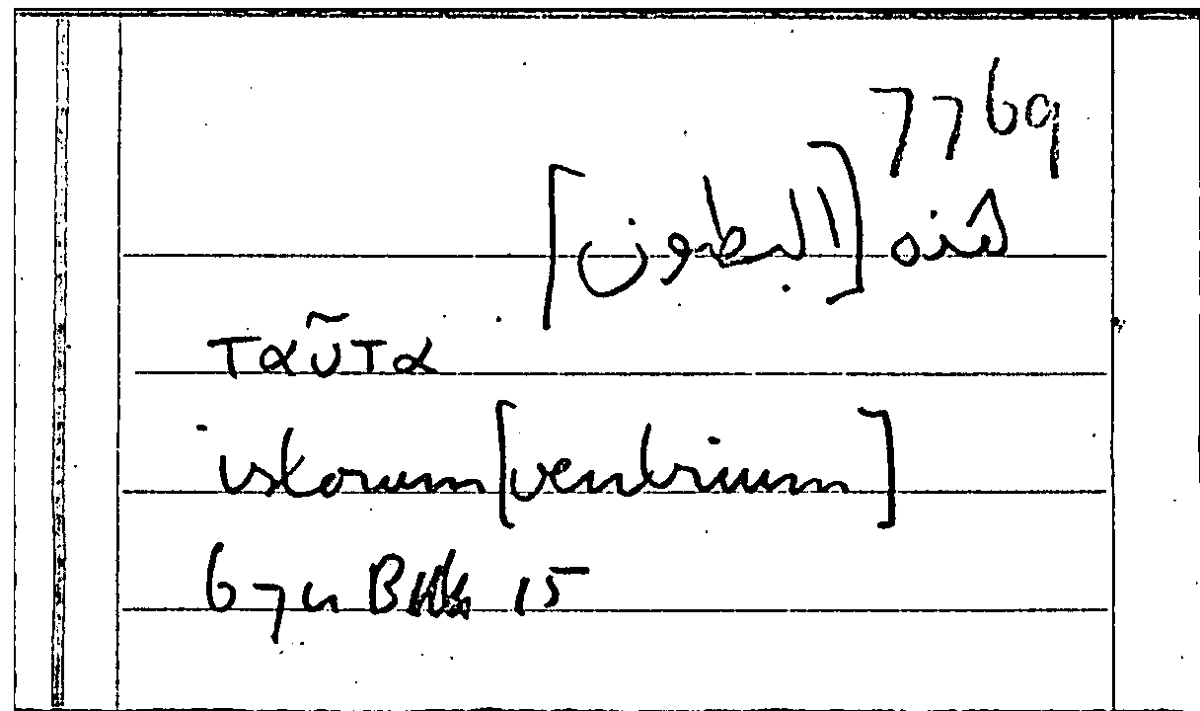 7769
هذه [البطون]
ταῦτα
istorum [ventrium]
674 B 15